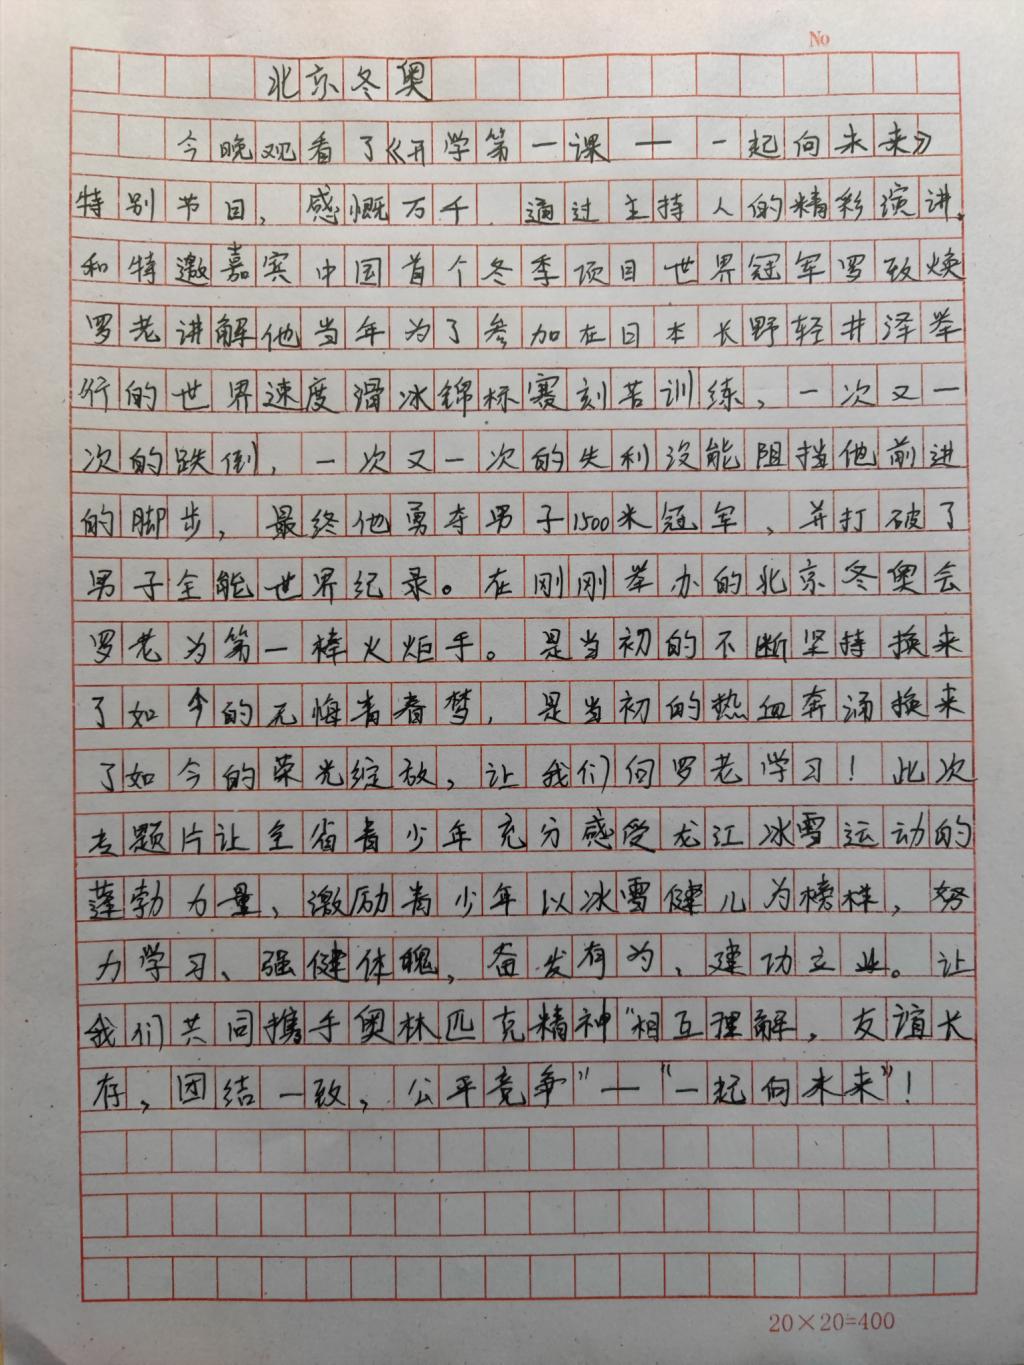 No
北京冬奥
今晚观看了《开学第一课——一起向未来》
特别节目，感慨万千．通过主持人的精彩演讲．
和特邀嘉宾中国首个冬季项目世界冠军罗致焕
罗老讲解他当年为了参加在日本长野轻井泽举
行的世界速度滑冰锦标赛刻苦训练，一次又一
次的跌倒，一次又一次的失利没能阻挡他前进
的脚步，最终他勇夺男子1500米冠军，并打破了
男子全能世界纪录。在刚刚举办的北京冬奥会
罗老为第一棒火炬手。是当初的不断坚持换来
了如今的无悔青春梦，是当初的热血奔涌换来
了如今的荣光绽放，让我们向罗老学习！此次
专题片让全省青少年充分感受龙江冰雪运动的
蓬勃力量、激励青少年以冰雪健儿为榜样，努
力学习、强健体魄，奋发有为、建功立业。让
我们共同携手奥林匹克精神“相互理解，友谊长
存，团结一致，公平竞争”—“一起向未来”！
20×20=400